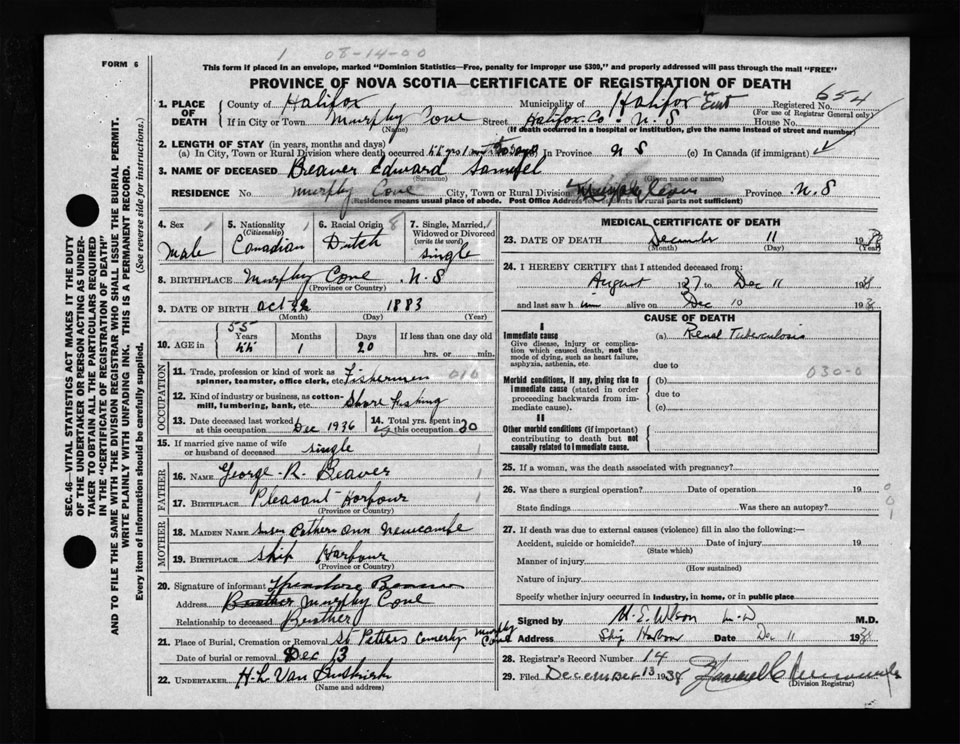 1 08-14-00
FORM 6
This form if placed in an envelope, marked "Dominion Statistics—Free, penalty for improper use $300," and properly addressed will pass through the mail "FREE"
PROVINCE OF NOVA SCOTIA—CERTIFICATE OF REGISTRATION OF DEATH
654
1. PLACE OF DEATH
County of Halifax Municipality of Halifax East Registered No.
(For use of Registrar General only)
If in City or Town Murphy Cove Street Halifax Co. N.S House No.
(Name) (If death occurred in a hospital or institution, give the name instead of street and number)
2. LENGTH OF STAY (in years, months and days)
(a) In City, Town or Rural Division where death occurred In Province N S (c) In Canada (if immigrant)
3. NAME OF DECEASED Beaver Edward Samuel
(Surname) (Given name or names)
RESIDENCE No. Murphy Cove City, Town or Rural Division Province N.S
(Residence means usual place of abode. Post Office Address for residents in rural parts not sufficient)
4. Sex 1
male
5. Nationality (Citizenship) 1
Canadian
6. Racial Origin 8
Dutch
7. Single, Married, Widowed or Divorced (write the word)
single
8. BIRTHPLACE Murphy Cove N.S
(Province or Country)
9. DATE OF BIRTH Oct 22 1883
(Month) (Day) (Year)
10. AGE in
55
Years Months Days If less than one day old
1 20 hrs. or min.
OCCUPATION
11. Trade, profession or kind of work as spinner, teamster, office clerk, etc. Fishermen 010
12. Kind of industry or business, as cotton-mill, lumbering, bank, etc. Shore Fishing
13. Date deceased last worked at this occupation Dec 1936
14. Total yrs. spent in this occupation 30
15. If married give name of wife or husband of deceased single
FATHER
16. NAME George R. Beaver 1
17. BIRTHPLACE Pleasant Harbour 1
(Province or Country)
MOTHER
18. MAIDEN NAME Ann Newcombe
19. BIRTHPLACE Ship Harbour
(Province or Country)
20. Signature of informant
Address Brother Murphy Cove
Relationship to deceased Brother
21. Place of Burial, Cremation or Removal St Peters Cemetery Murphy Cove
Date of burial or removal Dec 13
22. UNDERTAKER H.L. Van Buskirk
(Name and address)
MEDICAL CERTIFICATE OF DEATH
23. DATE OF DEATH December 11 1938
(Month) (Day) (Year)
24. I HEREBY CERTIFY that I attended deceased from:
August 1937 to Dec 11 1938
and last saw him alive on Dec 10 1938
CAUSE OF DEATH
I
Immediate cause
Give disease, injury or complication which caused death, not the mode of dying, such as heart failure, asphyxia, asthenia, etc.
(a) Renal Tuberculosis
due to
Morbid conditions, if any, giving rise to immediate cause (stated in order proceeding backwards from immediate cause).
(b) 030-0
due to
(c)
II
Other morbid conditions (if important) contributing to death but not causally related to immediate cause.
25. If a woman, was the death associated with pregnancy?
26. Was there a surgical operation? Date of operation 19
State findings Was there an autopsy?
001
27. If death was due to external causes (violence) fill in also the following:—
Accident, suicide or homicide? Date of injury 19
(State which)
Manner of injury
(How sustained)
Nature of injury
Specify whether injury occurred in industry, in home, or in public place
Signed by M. E. Wilson M.D.
Address Ship Harbour Date Dec 11 1938
28. Registrar's Record Number 14
29. Filed December 13 1938
(Division Registrar)
SEC. 46—VITAL STATISTICS ACT MAKES IT THE DUTY
OF THE UNDERTAKER OR PERSON ACTING AS UNDER-
TAKER TO OBTAIN ALL THE PARTICULARS REQUIRED
IN THE "CERTIFICATE OF REGISTRATION OF DEATH"
AND TO FILE THE SAME WITH THE DIVISION REGISTRAR WHO SHALL ISSUE THE BURIAL PERMIT.
WRITE PLAINLY WITH UNFADING INK. THIS IS A PERMANENT RECORD.
Every item of information should be carefully supplied. (See reverse side for instructions.)